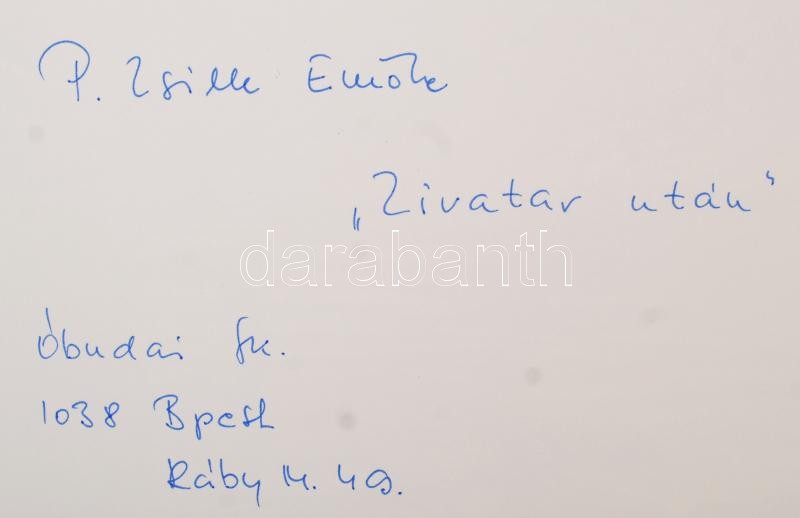 P. Zsille Emőke
„Zivatar után"
darabanth
Óbudai Gk.
1038 Bpest
Ráby M. u 9.